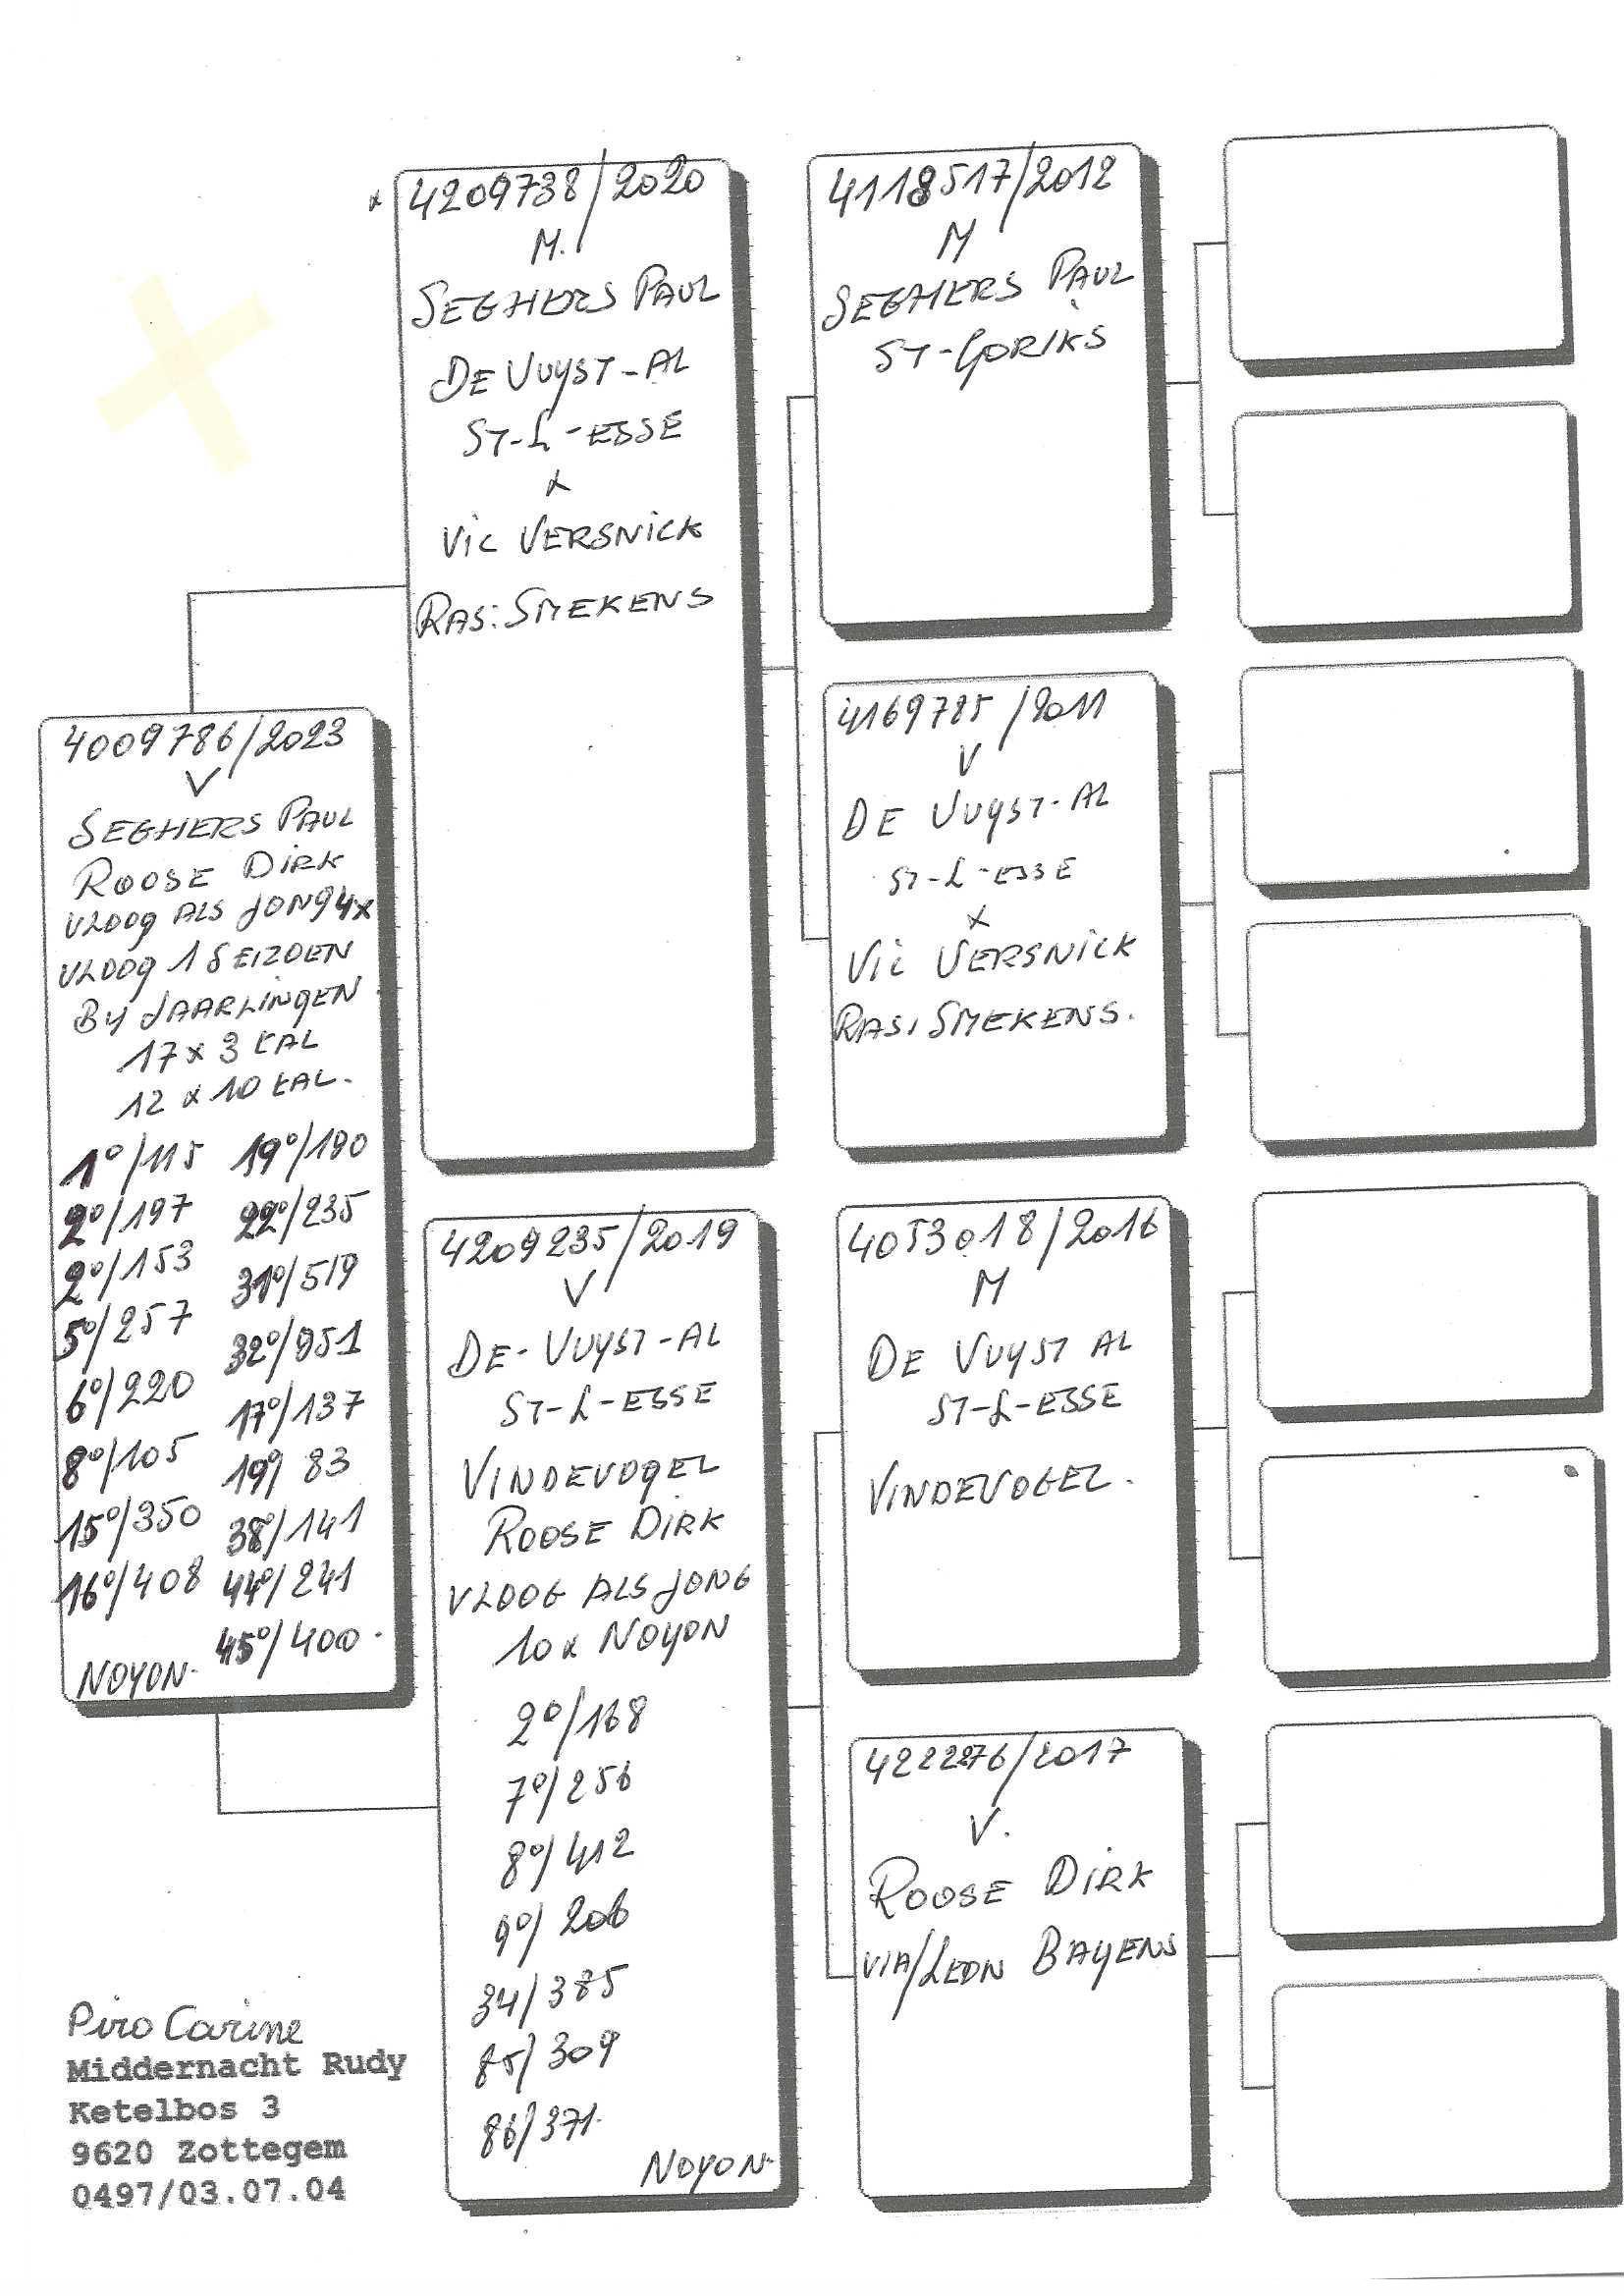 4009786/2023
V
SEGHERS PAUL
ROOSE DIRK
VLOOG ALS JONG 4x
VLOOG 1 SEIZOEN
BY JAARLINGEN.
17 x 3 KAL
12 x 10 KAL.
1°/115 19°/190
2°/197 22°/235
2°/153 31°/519
5°/257 32°/951
6°/220 17°/137
8°/105 19°/83
15°/350 38°/141
16°/408 44°/241
45°/400.
NOYON.
x 4209738/2020
M.
SEGHERS PAUL
DE VUYST-AL
ST-L-ESSE
x
VIC VERSNICK
RAS: SMEKENS
4209235/2019
V
DE-VUYST-AL
ST-L-ESSE
VINDEVOGEL
ROOSE DIRK
VLOOG ALS JONG
10 x NOYON
2°/168
7°/256
8°/412
9°/206
34/385
85/309
86/371.
NOYON.
4118517/2012
M
SEGHERS PAUL
ST-GORIKS
4169785/2011
V
DE VUYST-AL
ST-L-ESSE
x
VIC VERSNICK
RAS: SMEKENS.
4053018/2016
M
DE VUYST AL
ST-L-ESSE
VINDEVOGEL.
4222276/2017
V.
ROOSE DIRK
VIA/LEON BAYENS
Piro Carine
Middernacht Rudy
Ketelbos 3
9620 Zottegem
0497/03.07.04